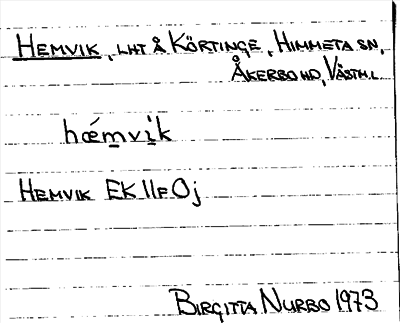 HEMVIK, LHT Å KÖRTINGE, HIMMETA SN,
ÅKERBO HD, VÄSTM.L
hǽm̲vi̲k
HEMVIK EK 11F Oj
BIRGITTA NURBO 1973